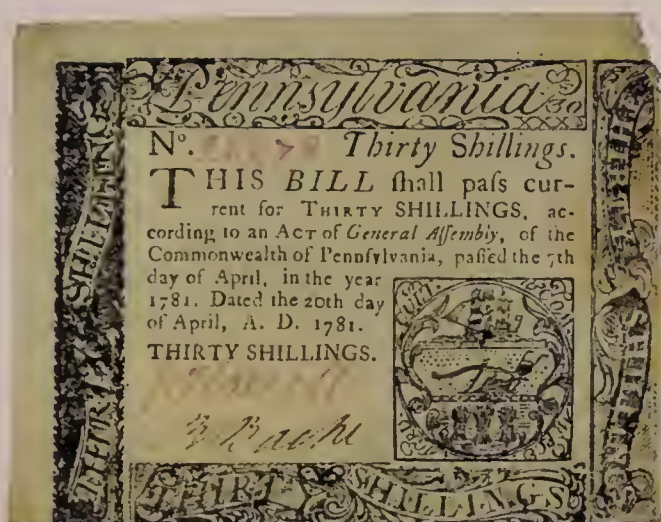 Pennsylvania
No. Thirty Shillings.
THIS BILL ſhall paſs cur-
rent for THIRTY SHILLINGS, ac-
cording to an ACT of General Aſſembly, of the
Commonwealth of Pennſylvania, paſſed the 7th
day of April, in the year
1781. Dated the 20th day
of April, A. D. 1781.
THIRTY SHILLINGS.
B Bache
THIRTY SHILLINGS
THIRTY SHILLINGS